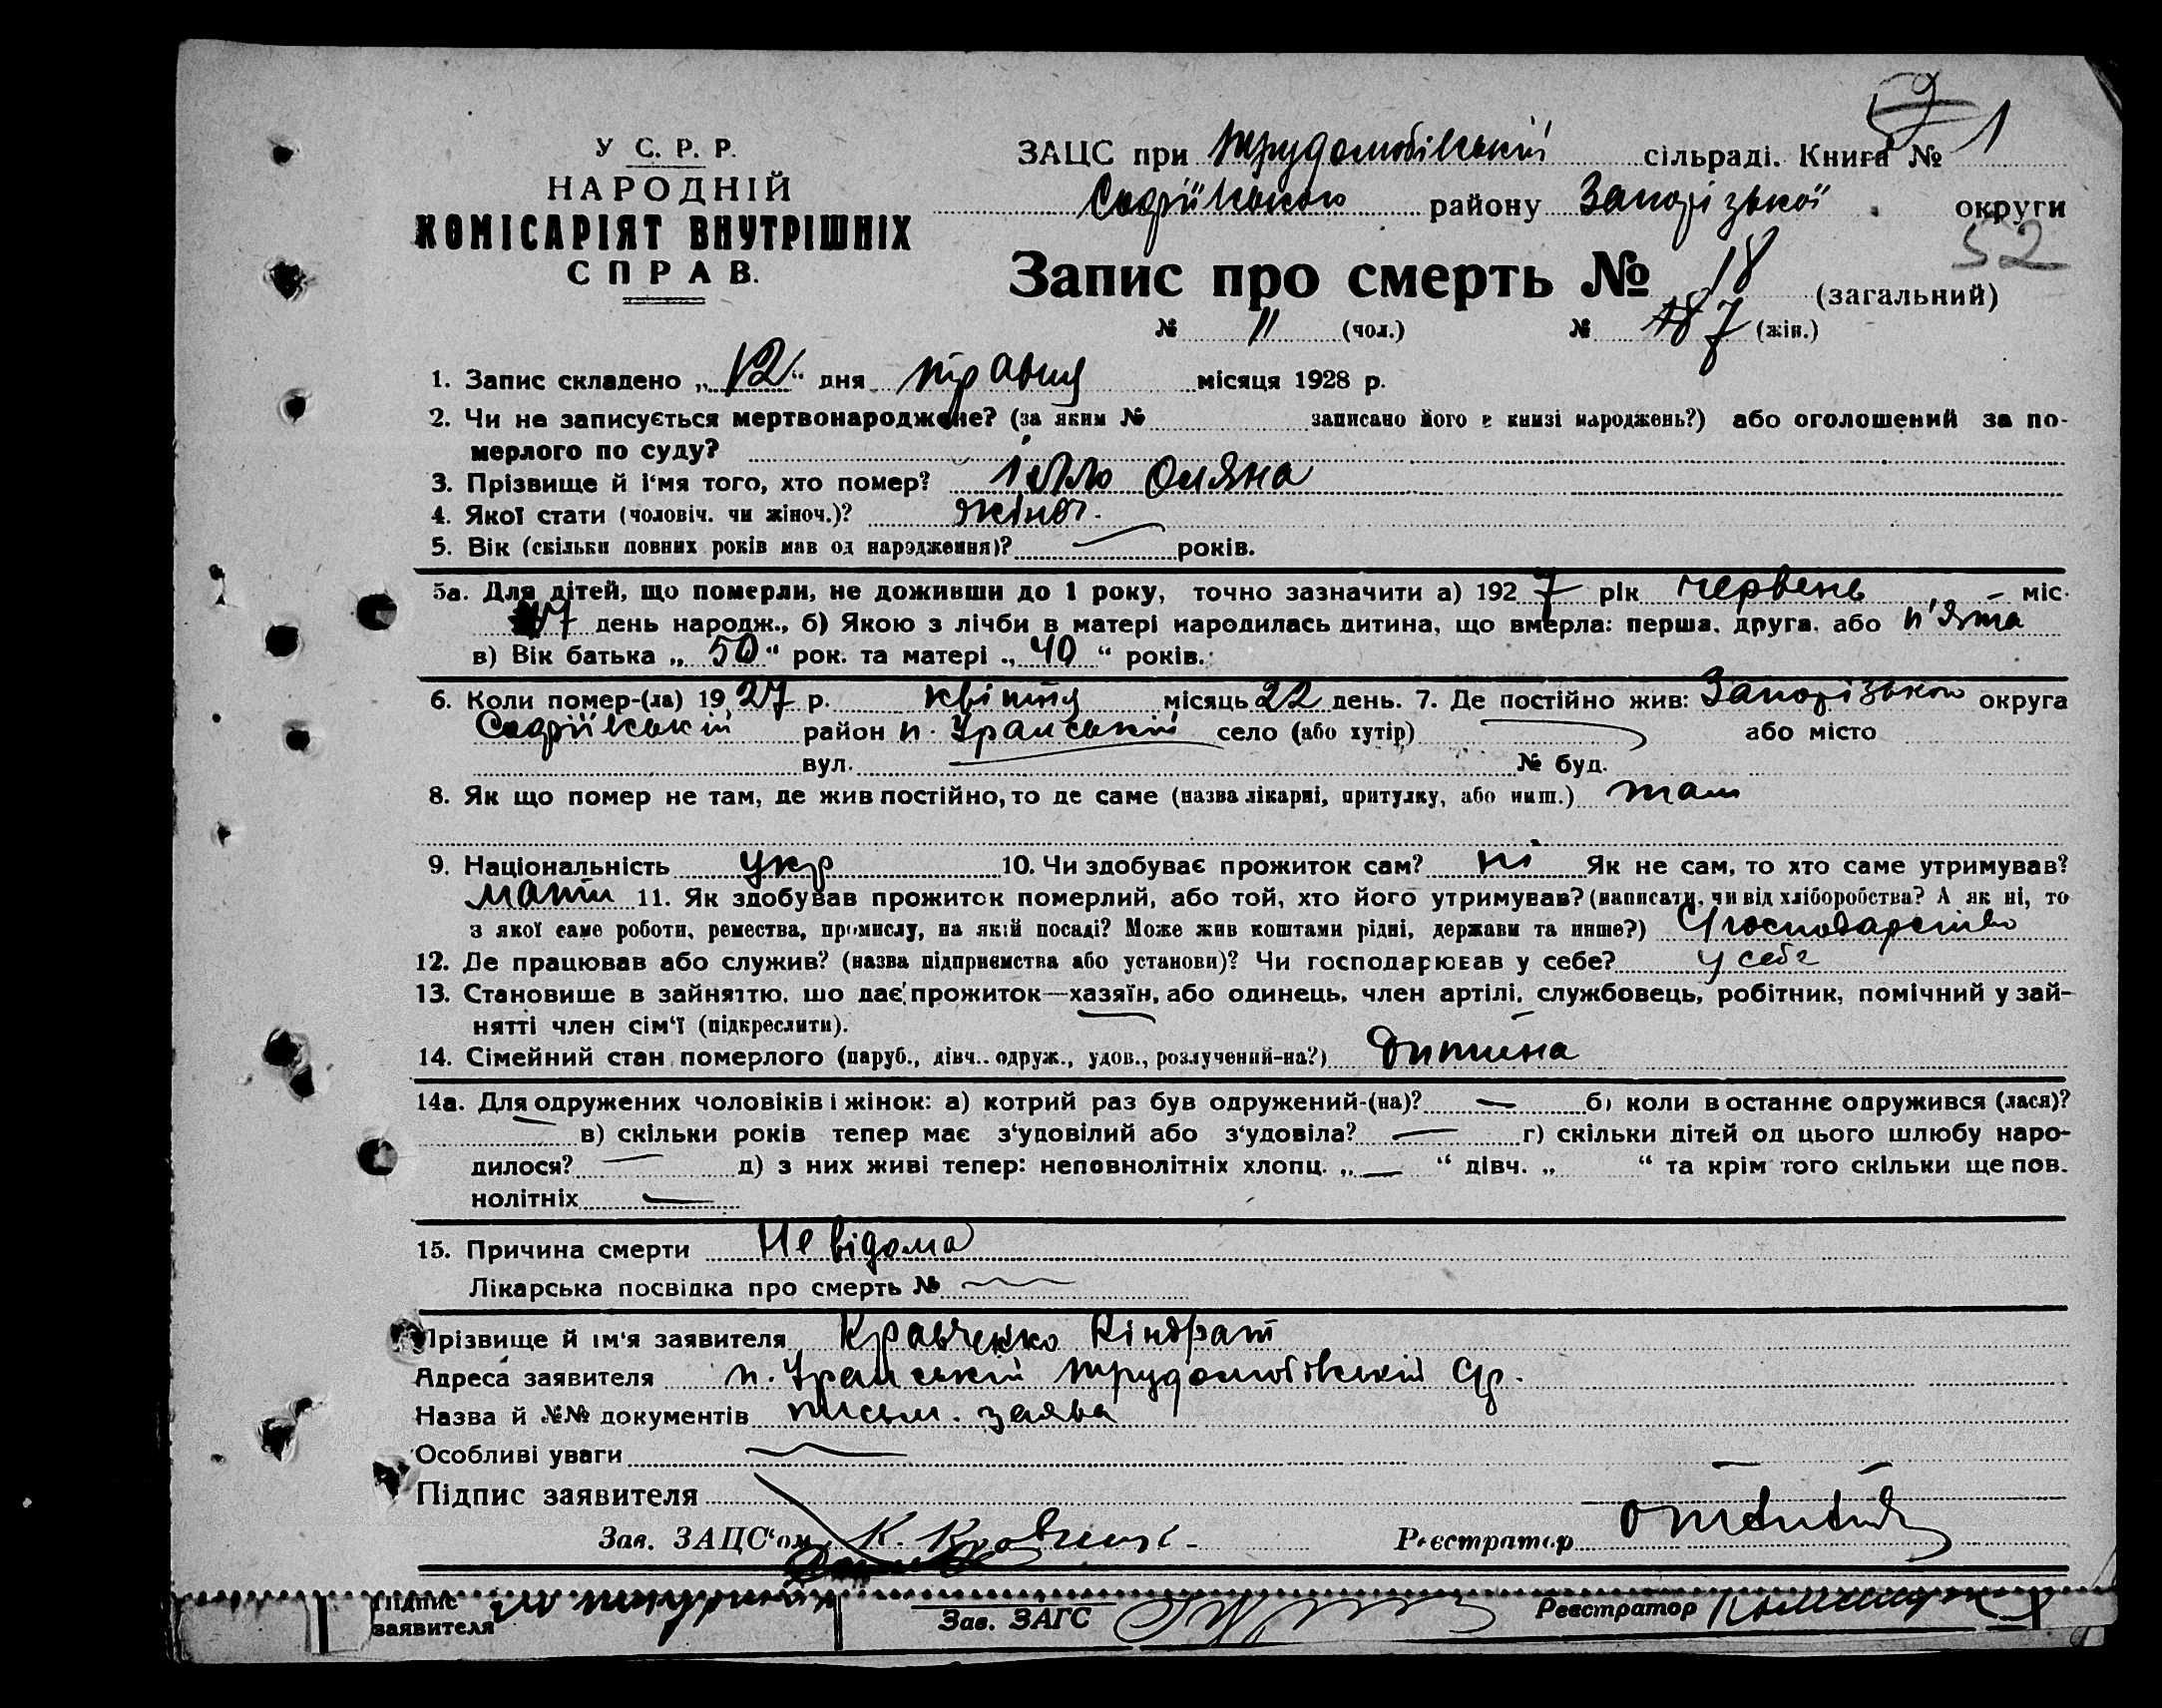 59
У С. Р. Р.
НАРОДНІЙ
КОМІСАРІЯТ ВНУТРІШНІХ
СПРАВ.
ЗАЦС при Трудолюбівській сільраді. Книга № 1
Софіївського району Запорізької округи
52
Запис про смерть № 18 (загальний)
№ 11 (чол.) № 18 7 (жін.)
1. Запис складено „12“ дня травня місяця 1928 р.
2. Чи не записується мертвонароджене? (за яким № записано його в книзі народжень?) або оголошений за по-
мерлого по суду?
3. Прізвище й і‘мя того, хто помер? Оляна
4. Якої стати (чоловіч. чи жіноч.)? жіноч.
5. Вік (скільки повних років мав од народження)? — років.
5а. Для дітей, що померли, не доживши до 1 року, точно зазначити а) 1927 рік червень міс.
17 день народж., б) Якою з лічби в матері народилась дитина, що вмерла: перша, друга, або п'ята
в) Вік батька „50“ рок. та матері „40“ років.
6. Коли помер-(ла) 1927 р. квітня місяць 22 день. 7. Де постійно жив: Запорізької округа
Софіївській район п. Уральській село (або хутір) або місто
вул. № буд.
8. Як що помер не там, де жив постійно, то де саме (назва лікарні, притулку, або инш.) там
9. Національність укр 10. Чи здобуває прожиток сам? ні Як не сам, то хто саме утримував?
мати 11. Як здобував прожиток померлий, або той, хто його утримував? (написати, чи від хліборобства? А як ні, то
з якої саме роботи, ремества, промислу, на якій посаді? Може жив коштами рідні, держави та инше?) господарство
12. Де працював або служив? (назва підприємства або установи)? Чи господарював у себе? у себе
13. Становище в зайняттю, що дає прожиток—хазяїн, або одинець, член артілі, службовець, робітник, помічний у зай-
нятті член сім‘ї (підкреслити).
14. Сімейний стан померлого (паруб., дівч.. одруж., удов., розлучений-на?) дитина
14а. Для одружених чоловіків і жінок: а) котрий раз був одружений-(на)? — б) коли востаннє одружився (лася)?
— в) скільки років тепер має з‘удовілий або з‘удовіла? — г) скільки дітей од цього шлюбу наро-
дилося? — д) з них живі тепер: неповнолітніх хлопц. „—“ дівч. „ “ та крім того скільки ще пов.
нолітніх —
15. Причина смерти Невідома
Лікарська посвідка про смерть № —
Прізвище й ім‘я заявителя Кравченко Кіндрат
Адреса заявителя п. Уральській Трудолюбівській с/р.
Назва й №№ документів письм. заява
Особливі уваги —
Підпис заявителя
Зав. ЗАЦС‘ом Реєстратор
Підпис
заявителя Зав. ЗАГС Реєстратор